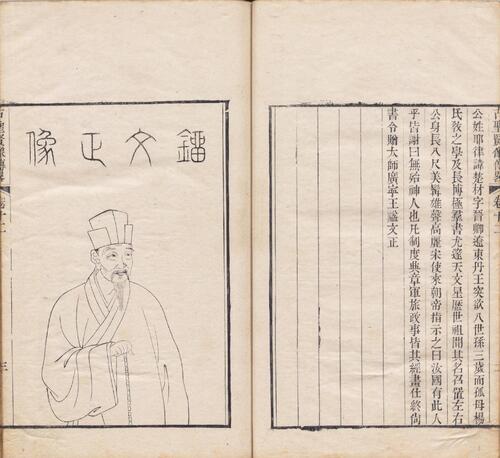 古聖賢像傳畧
卷十二
公姓耶律諱楚材字晉卿遼東丹王突欲八世孫三歲而孤母楊
氏敎之學及長博極羣書尤邃天文星厯世祖聞其名召置左右
公身長八尺美髯雄聲高麗宋使來朝帝指示之曰汝國有此人
乎皆謝曰無殆神人也凡制度典章軍旅政事皆其經畫仕終尙
書令贈太師廣寧王諡文正
鐂文正像
古聖賢像傳畧
卷十二
三